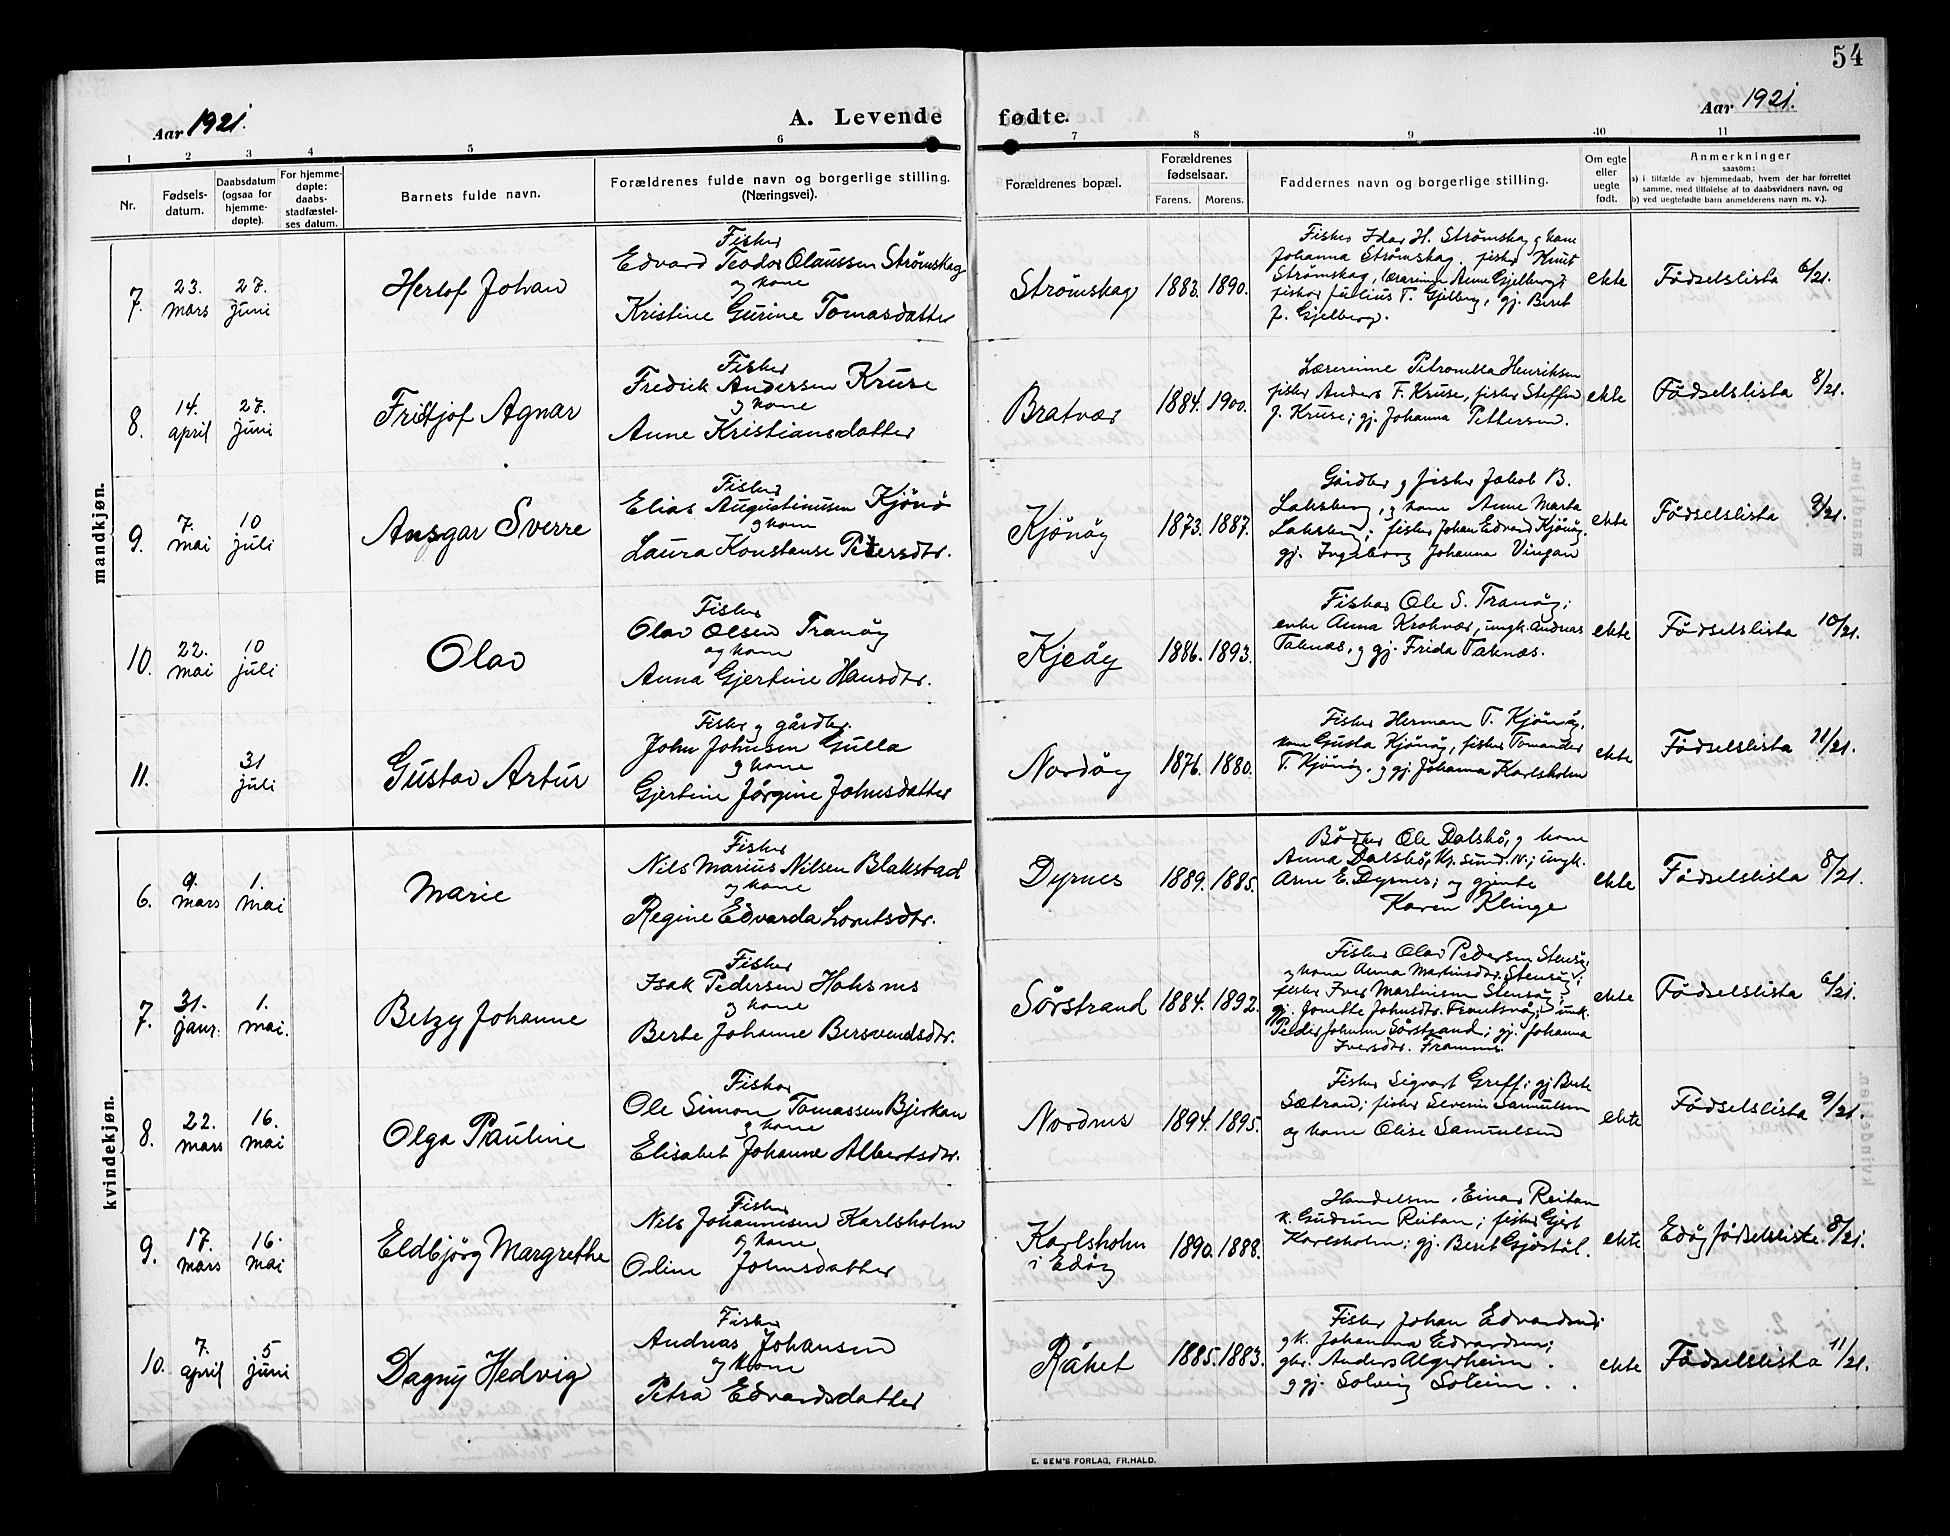 54
Aar 1921.
A. Levende
fødte.
Aar 1921.
1 2 3 4 5 6 7 8 9 10 11
Nr.
Fødsels-
datum.
Daabsdatum
(ogsaa for
hjemme-
døpte).
For hjemme-
døpte:
daabs-
stadfæstel-
ses datum.
Barnets fulde navn.
Forældrenes fulde navn og borgerlige stilling.
(Næringsvei).
Forældrenes bopæl.
Forældrenes
fødselsaar.
Farens. Morens.
Faddernes navn og borgerlige stilling.
Om egte
eller
uegte
født.
Anmerkninger
saasom:
a) i tilfælde av hjemmedaab, hvem der har forrettet
samme, med tilføielse af to daabsvidners navn, og
b) ved uegtefødte barn anmelderens navn m. v.).
mandkjøn.
7.
23.
mars
27.
juni
Herlof Johan
Fisker
Edvard Teodor Olaussen Strømskag
og kone
Kristine Gurine Tomasdatter
Strømskag
1883. 1890.
Fisker Idar H. Strømskag og kone
Johanna Strømskag. fisker Knut
Strømskag, lærerinne Anne Gjelberg;
fisker Julius T. Gjelberg, gj. Beret
J. Gjelberg.
ekte
Fødselslista 6/21.
8.
14.
april
27.
juni
Fridtjof Agnar
Fisker
Fredrik Andersen Kruse
og kone
Anne Kristiansdatter
Bratvær
1884. 1900.
Lærerinne Petronella Henriksen
fisker Anders F. Kruse, fisker Steffen
J. Kruse; gj. Johanna Pettersen.
ekte
Fødselslista 8/21.
9.
7.
mai
10
juli
Ansgar Sverre
Fisker
Elias Augustinusen Kjönö
og kone
Laura Konstanse Petersdtr.
Kjönöy
1873. 1887.
Gårdbr og fisker Jakob B.
Laksberg, og kone Anne Marta
Laksberg; fisker Johan Edvard Kjönöy.
gj. Ingeborg Johanna Vingan
ekte
Fødselslista 9/21.
10.
22.
mai
10
juli
Olav
Fisker
Olav Olsen Tranöy
og kone
Anna Gjertine Hansdtr.
Kjeöy
1886. 1893.
Fisker Ole S. Tranöy;
enke Anna Krokvær, ungk. Andreas
Taknes, og gj. Frida Taknæs.
ekte
Fødselslista 10/21.
11.
31
juli
Gustav Artur
Fisker og gårdbr.
John Johnsen Gulla
og kone
Gjertine Jørgine Johnsdatter
Nordöy
1876. 1880.
Fisker Herman T. Kjönöy,
kone Gusta Kjönöy, fisker Tomander
T. Kjönöy. og gj. Johanna Karlsholm
ekte
Fødselslista 11/21.
kvindekjøn.
6.
9.
mars
1.
mai
Marie
Fisker
Nils Marius Nilsen Blakstad
og kone
Regine Edvarda Lorntsdtr.
Dyrnes
1889. 1885.
Bödker Ole Dalskö, og kone
Anna Dalskö, Kr. sund. N.; ungk.
Arne E. Dyrnes; og gjente
Karen Klinge
ekte
Fødselslista 8/21.
7.
31.
janr.
1.
mai.
Betzy Johanne
Fisker
Isak Pedersen Hoksnes
og kone
Berte Johanne Bersvendsdtr.
Sørstrand
1884. 1892.
Fisker Olav Pedersen Stensöy;
og kone Anna Martinsdtr. Stensöy;
fisker Iver Martinsen Stensöy;
gj. Jonette Johnsdtr. Frantsvåg; unk.
Peder Johnsen Sørstrand; gj. Johanna
Iversdtr. Framnes.
ekte
Fødselslista 6/21.
8.
22.
mars
16.
mai
Olga Pauline
Fisker
Ole Simon Tomassen Bjerkan
og kone
Elisabet Johanne Albertsdtr.
Nordnes
1894. 1895.
Fisker Sigvart Greff; gj Berte
Sætran; fisker Severin Samulsen
og kone Olise Samuelsen
ekte
Fødselslista 9/21.
9.
17.
mars
16.
mai
Eldbjörg Margrethe
Fisker
Nils Johannesen Karlsholm
og kone
Oline Johnsdatter
Karlsholm
i Edöy
1890. 1888.
Handelsm. Einar Reitan
k. Gudrun Reitan; fisker Gjert
Karlsholm; gj. Beret Gjöstöl.
ekte
Edöy fødselsliste 8/21.
10.
7.
april
5
juni
Dagny Hedvig
Fisker
Andreas Johansen
og kone
Petra Edvardsdatter
Råket
1885. 1883.
Fisker Johan Edvardsen;
og k. Johanna Edvardsen;
gbr. Anders Algerheim.
og gj. Solveig Soleim.
ekte
Fødselslista 11/21.
E. SEM'S FORLAG, FR.HALD.